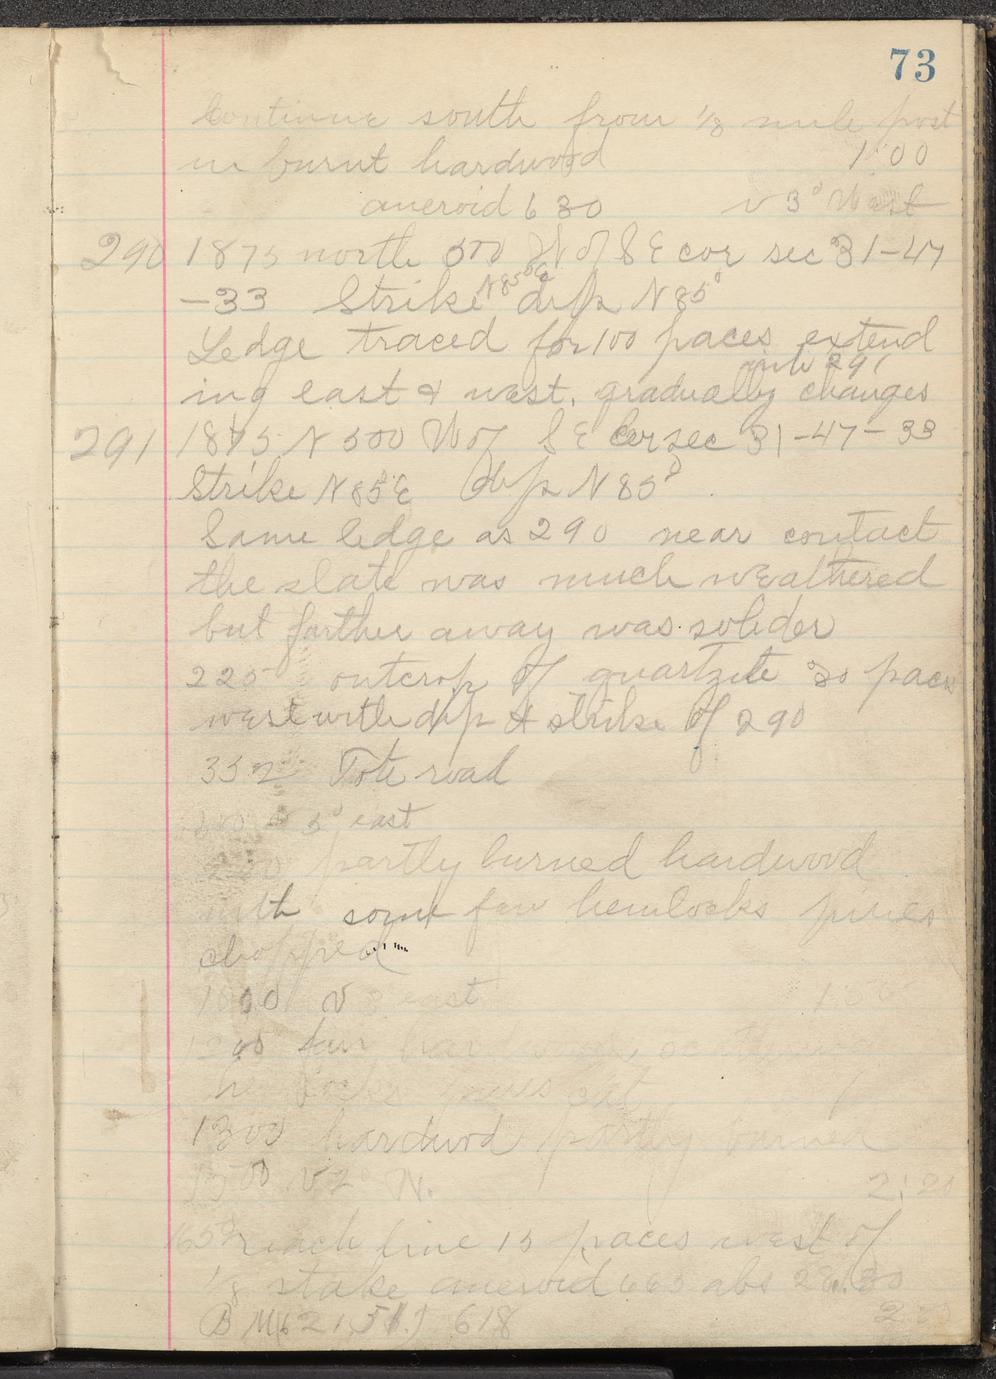 73
Continue south from 1/8 mile post
in burnt hardwood 1 00
aneroid 630 v 3° West
290 1875 north 500 W of S E cor sec 31-47
-33 Strike N85°E dip N 85°
Ledge traced for 100 paces extend
ing east & west. gradually changes
into 291
291 1875 N 500 W of S E cor sec 31-47-33
Strike N 85 E dip N 85°
Same ledge as 290 near contact
the slate was much weathered
but farther away was solider
225 outcrop of quartzite 30 paces
west with dip & strike of 290
352 Tote road
3° east
partly burned hardwood
with some few hemlocks pines
chopped
v east
few
pines cut
1303 hardwod partly burned
1500 v 2° N. 2:20
reach line 15 paces west of
1/8 stake aneroid 665 abs 28.30
B M 618